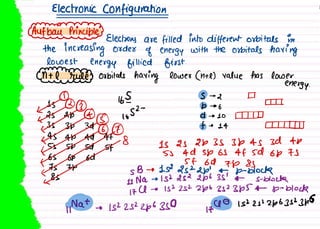 Electronic Configuration
Aufbau Principle Electrons are filled into different orbitals in
the increasing order of energy with the orbitals having
lowest energy filled first
(n+l rule) orbitals having lower (n+l) value has lower
energy.
1s
2s 2p
3s 3p 3d
4s 4p 4d 4f
5s 5p 5d 5f
6s 6p 6d
7s 7p
8s
1 2 3 4 5 6 7 8
16S
16S2-
s → 2
p → 6
d → 10
f → 14
1s 2s 2p 3s 3p 4s 3d 4p
5s 4d 5p 6s 4f 5d 6p 7s
5f 6d 7p 8s
5B → 1s2 2s2 2p1 ← p-block
11Na → 1s2 2s2 2p6 3s1 ← s-block
17Cl → 1s2 2s2 2p6 3s2 3p5 ← p-block
11Na+ → 1s2 2s2 2p6 3s0
17Cl⊖ → 1s2 2s2 2p6 3s2 3p6